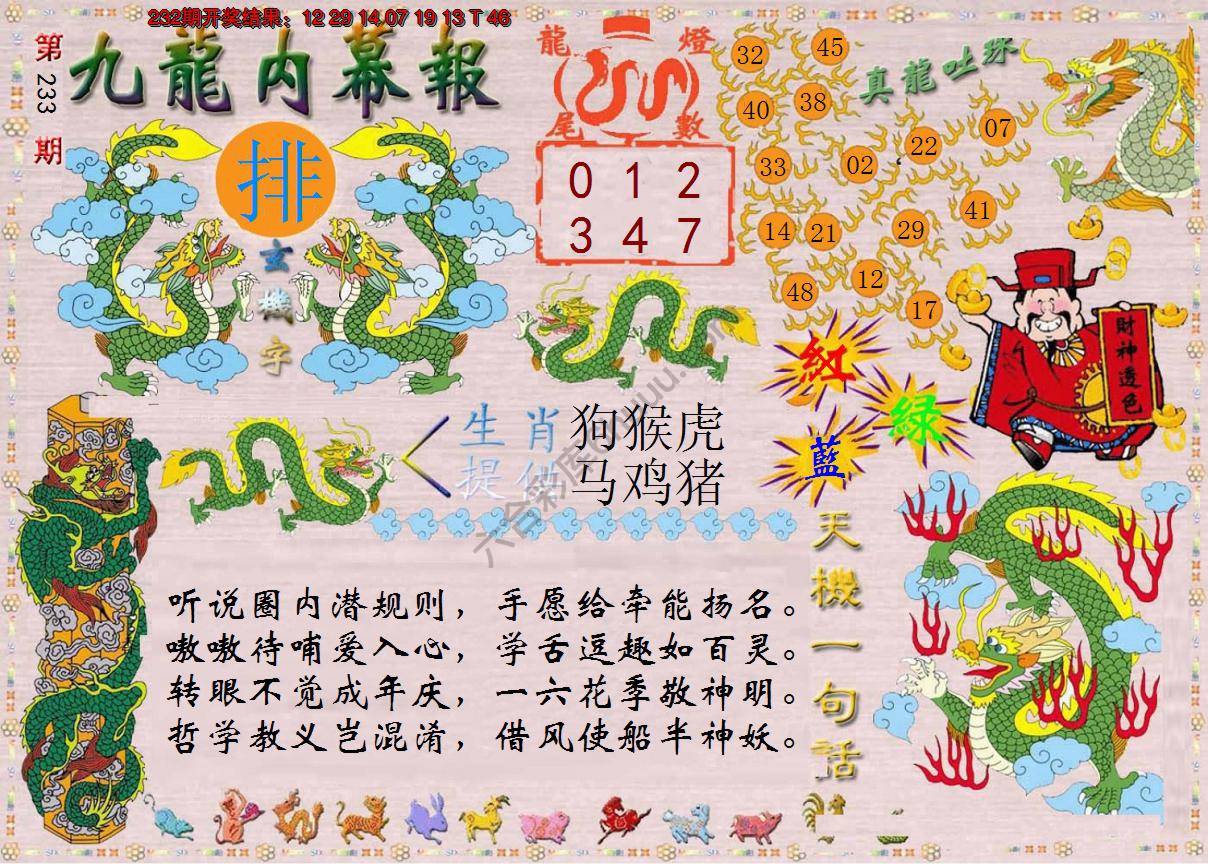 232期开奖结果：12 29 14 07 19 13 T 46
第233期
九龍内幕報
排
玄機字
龍燈
尾數
0 1 2
3 4 7
真龍吐珠
32
45
40
38
33
02
22
07
14
21
29
41
48
12
17
財神透色
紅
綠
藍
生肖 狗猴虎
提供 马鸡猪
天機一句話
听说圈内潜规则，手愿给牵能扬名。
嗷嗷待哺爱入心，学舌逗趣如百灵。
转眼不觉成年庆，一六花季敬神明。
哲学教义岂混淆，借风使船半神妖。